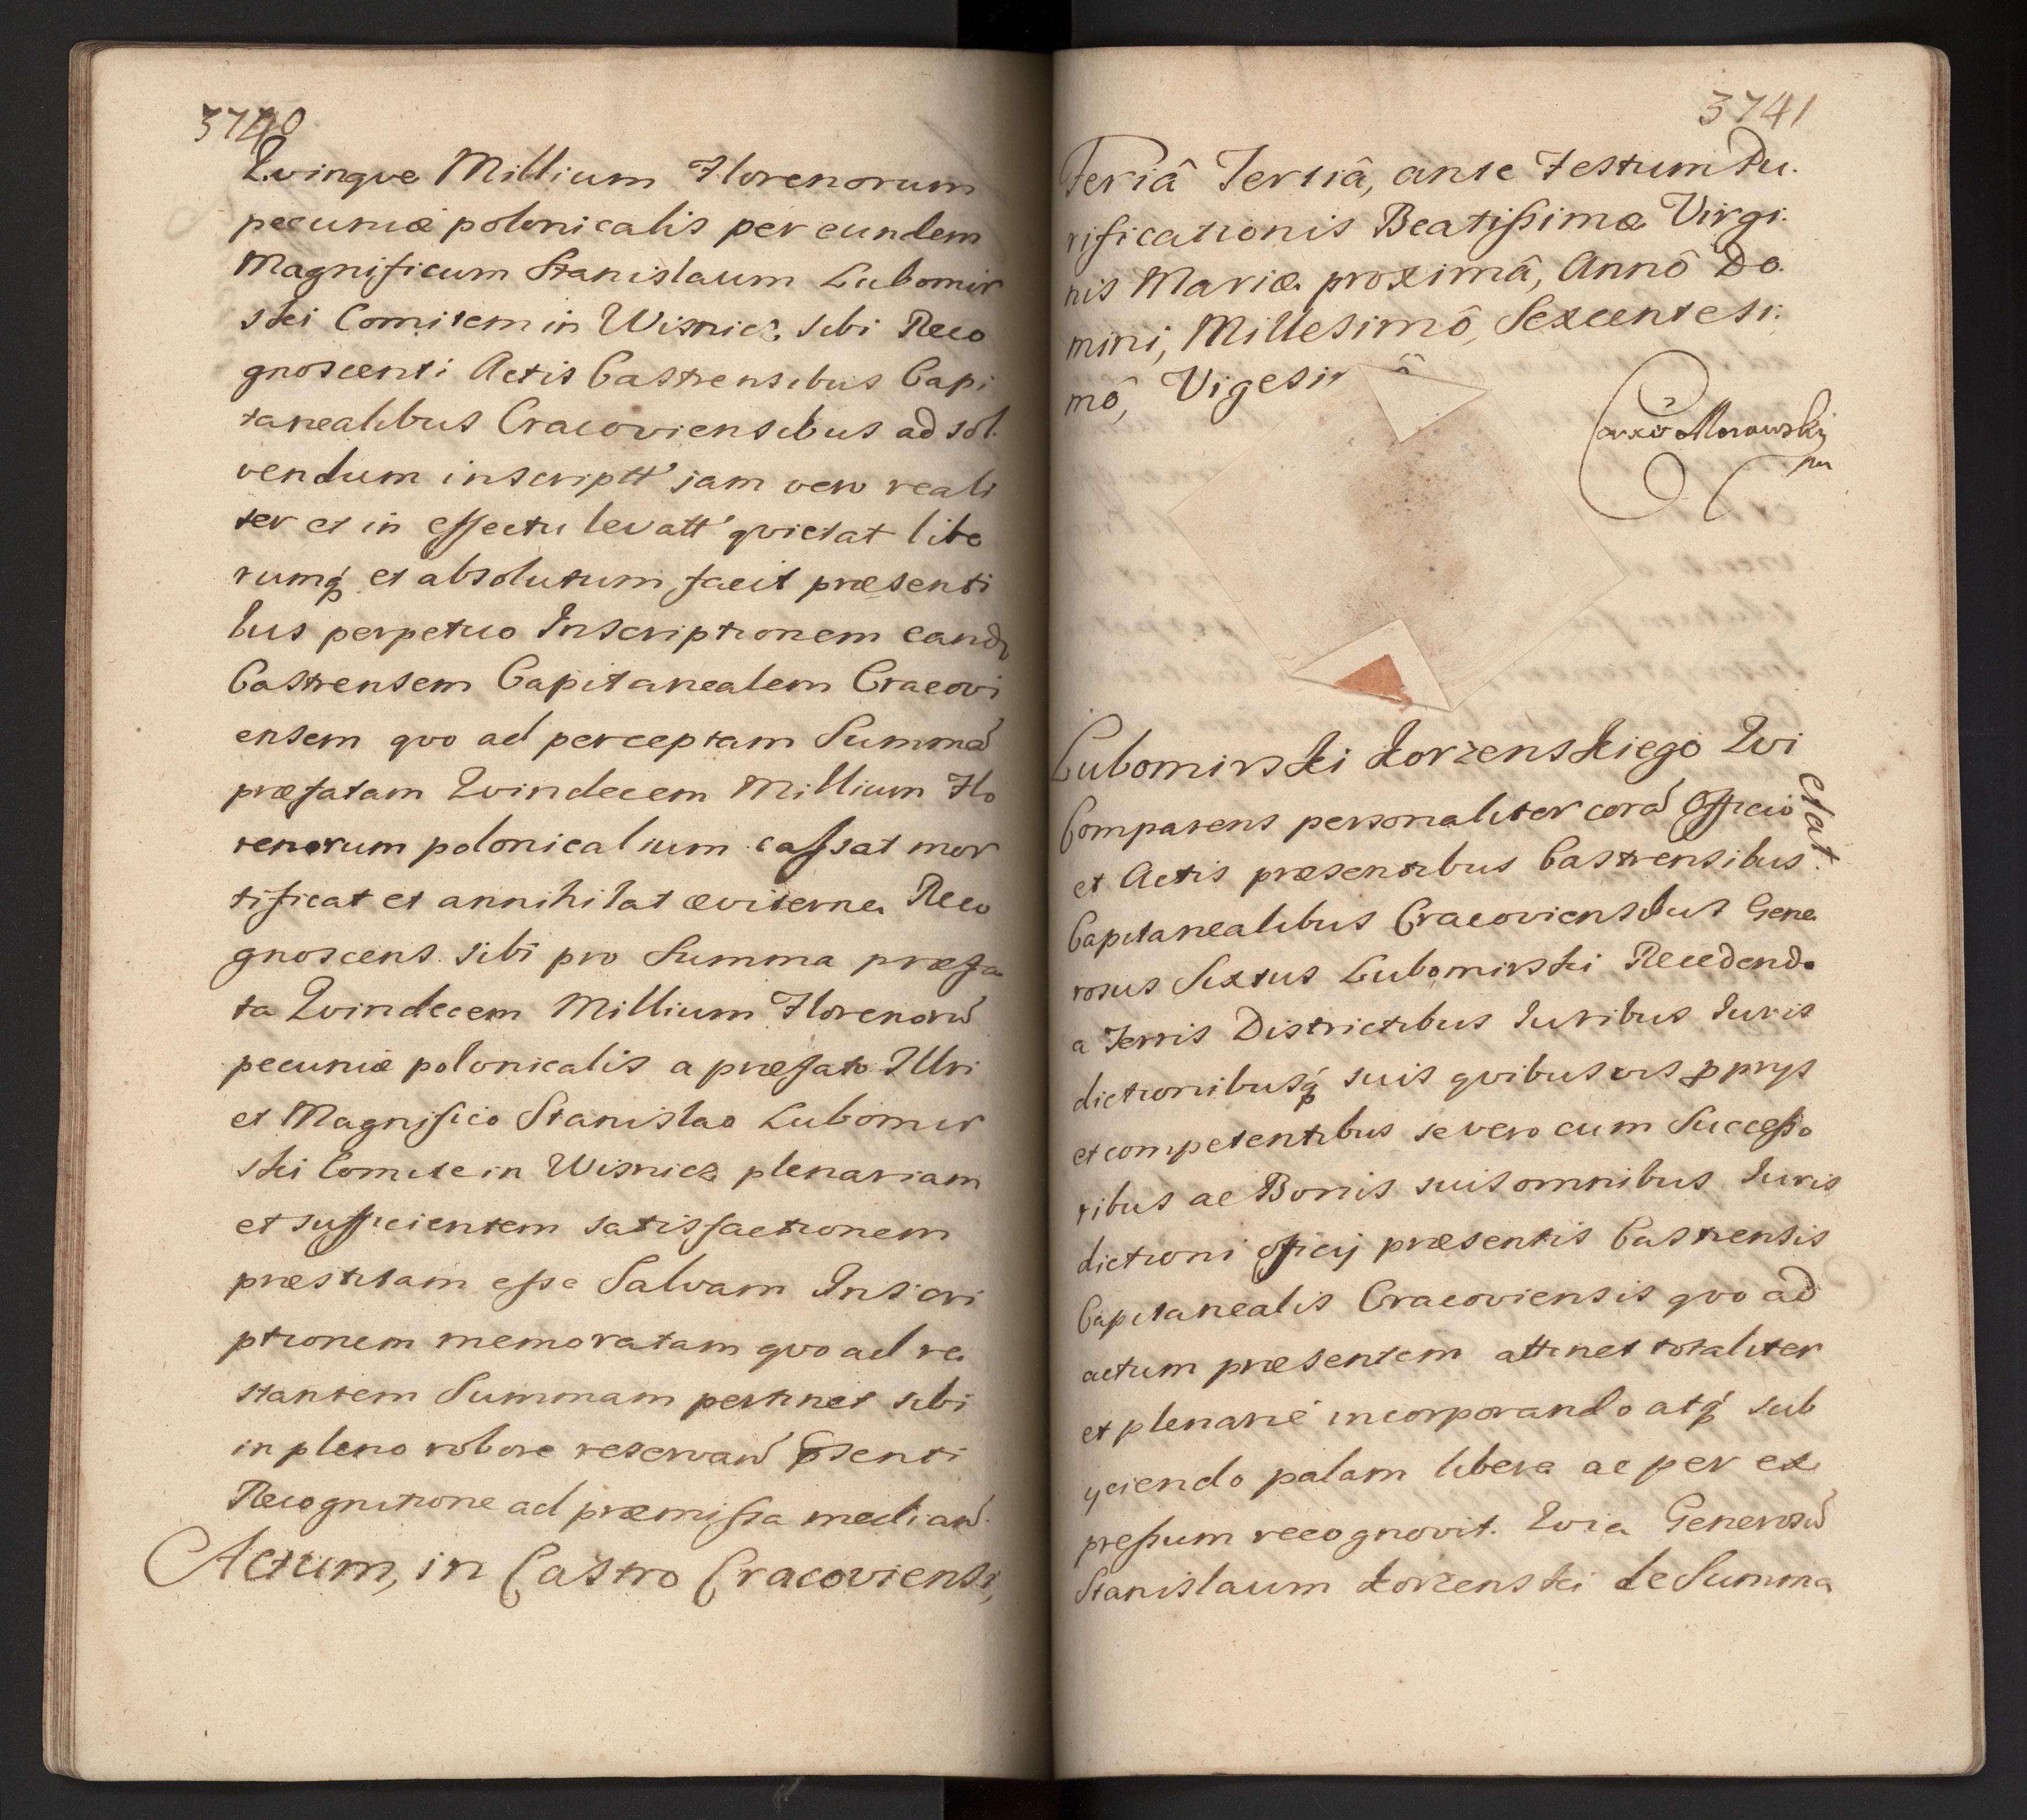 3740
Qvinqve Millium Florenorum
pecuniæ polonicalis per eundem
Magnificum Stanislaum Lubomir
ski Comitem in Wisnicz sibi Reco
gnoscenti Actis Castrensibus Capi
tanealibus Cracoviensibus ad sol.
vendum inscriptt' jam vero reali
ter et in effectu levatt' qvietat libe
rumq́ et absolutum facit præsenti
bus perpetuo Inscriptionem eand
Castrensem Capitanealem Cracovi
ensem qvo ad perceptam Summā
præfatam Qvindecem Millium Flo
renorum polonicalium cassat mor
tificat et annihilat æviterne Reco
gnoscens sibi pro Summa præfa
ta Qvindecem Millium Florenorū
pecuniæ polonicalis a præfato Illri
et Magnifico Stanislao Lubomir
ski Comite in Wisnicz plenariam
et sufficientem satisfactionem
præstitam esse Salvam Inscri
ptionem memoratam qvo ad re
stantem Summam pertinet sibi
in pleno robore reservań psenti
Recognitione ad præmissa mediań.
Actum, in Castro Cracoviensi,
3741
Feriâ Tertiâ, ante Festum Pu.
rificationis Beatissimæ Virgi.
nis Mariæ proximâ, Annô Do.
mini, Millesimô, Sexcentesi.
mô, Vigesi
Morawski
mp
Lubomirski Korzenskiego Qvi
etat.
Comparens personaliter corā Officio
et Actis præsentibus Castrensibus
Capitanealibus Cracoviensibus Gene
rosus Sixtus Lubomirski Recedendo
a Terris Districtibus Iuribus Iuris
dictionibusq́ suis qvibusvis pprys
et competentibus se vero cum Successo
ribus ac Bonis suis omnibus Iuris
dictioni officij præsentis Castrensis
Capitanealis Cracoviensis qvo ad
actum præsentem attinet totaliter
et plenarie incorporando atq́ sub
yciendo palam libere ac per ex
pressum recognovit. Qvia Generosū
Stanislaum Korzenski de Summa